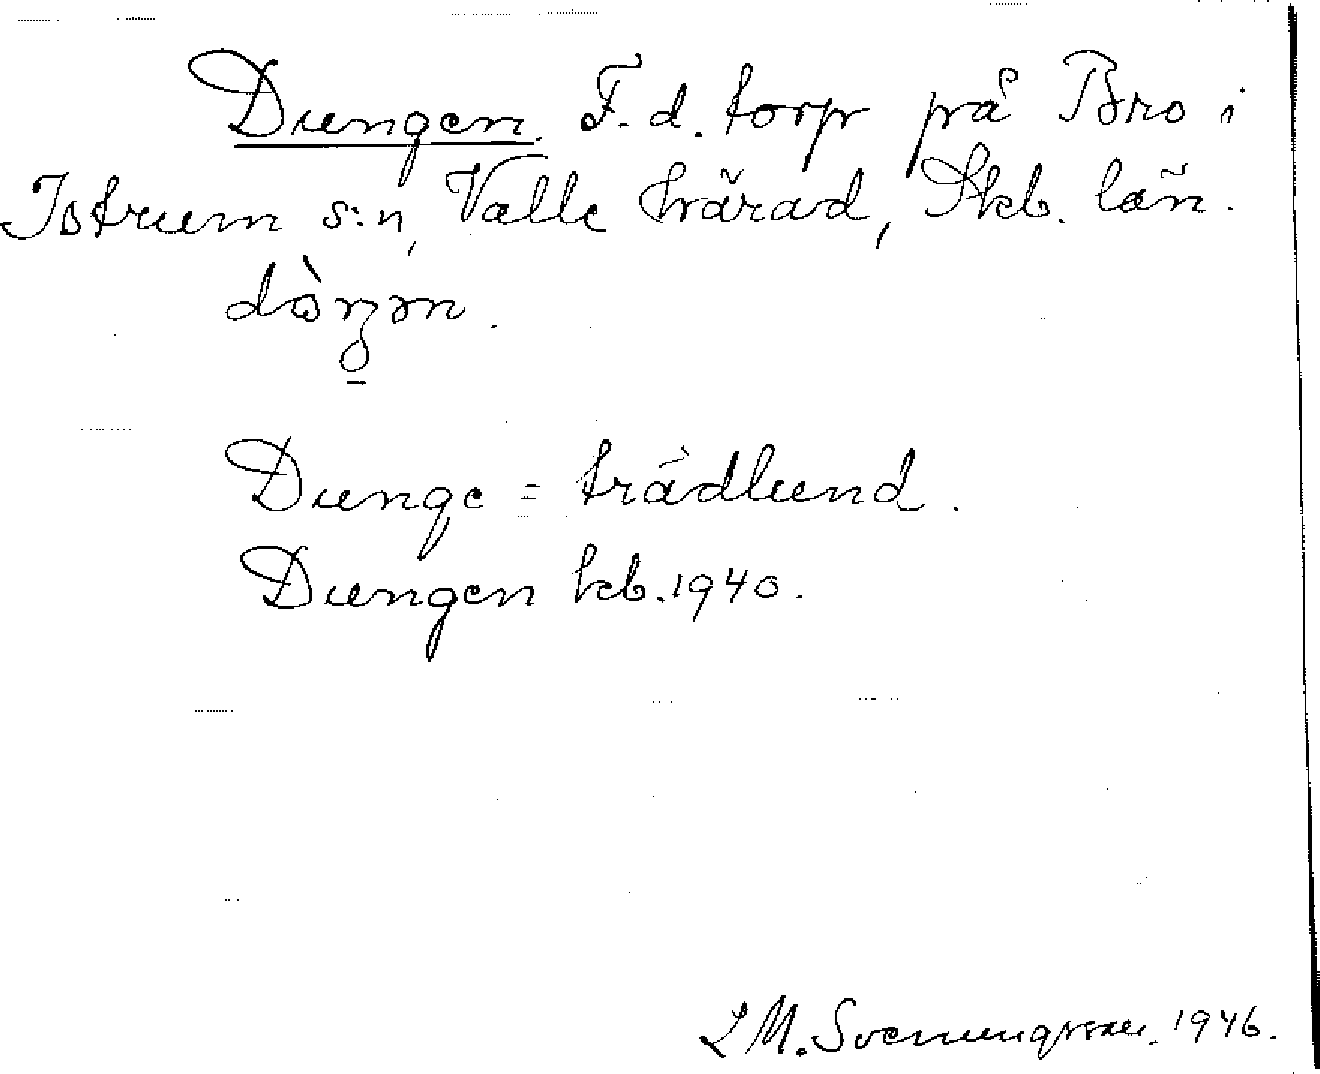 Dungen. F. d. torp på Bro i
Istrum s:n, Valle härad, Skb. län.
Dunge = trädlund.
Dungen kb. 1940.
L M. Svenungsson. 1946.